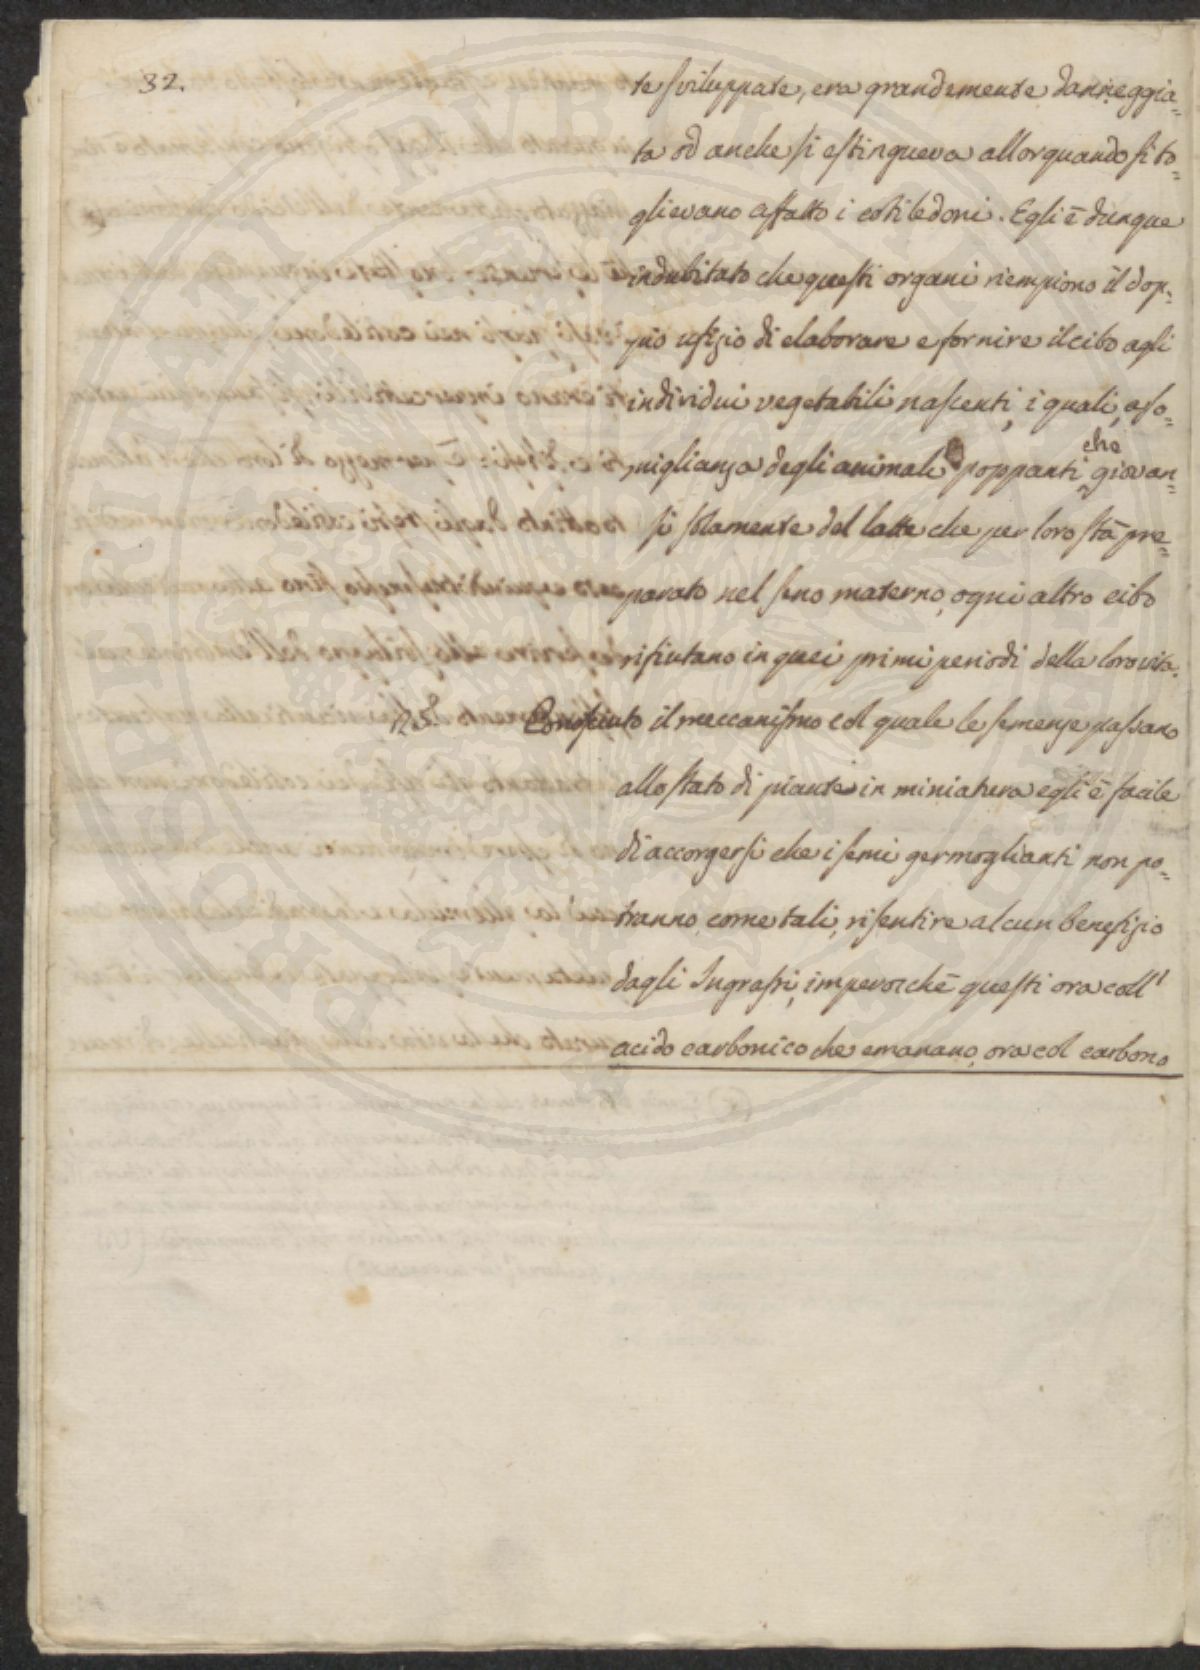 32.
te sviluppate, era grandemente danneggia=
ta od anche si estingueva allorquando si to=
glievano affatto i cotiledoni. Egli è dunque
indubitato che questi organi riempiono il dop=
pio ufizio di elaborare e fornire il cibo agli
individui vegetabili nascenti, i quali, a so=
miglianza degli animali poppanti che giovan=
si solamente del latte che per loro stà pre=
parato nel seno materno, ogni altro cibo
rifiutano in quei primi periodi della loro vita.
Conosciuto il meccanismo col quale le semenze passano
allo stato di piante in miniatura egli è facile
di accorgersi che i semi germoglianti non po=
tranno, come tali, risentire alcun benefizio
dagli Ingrassi, imperocchè questi ora coll'
acido carbonico che emanano, ora col carbono